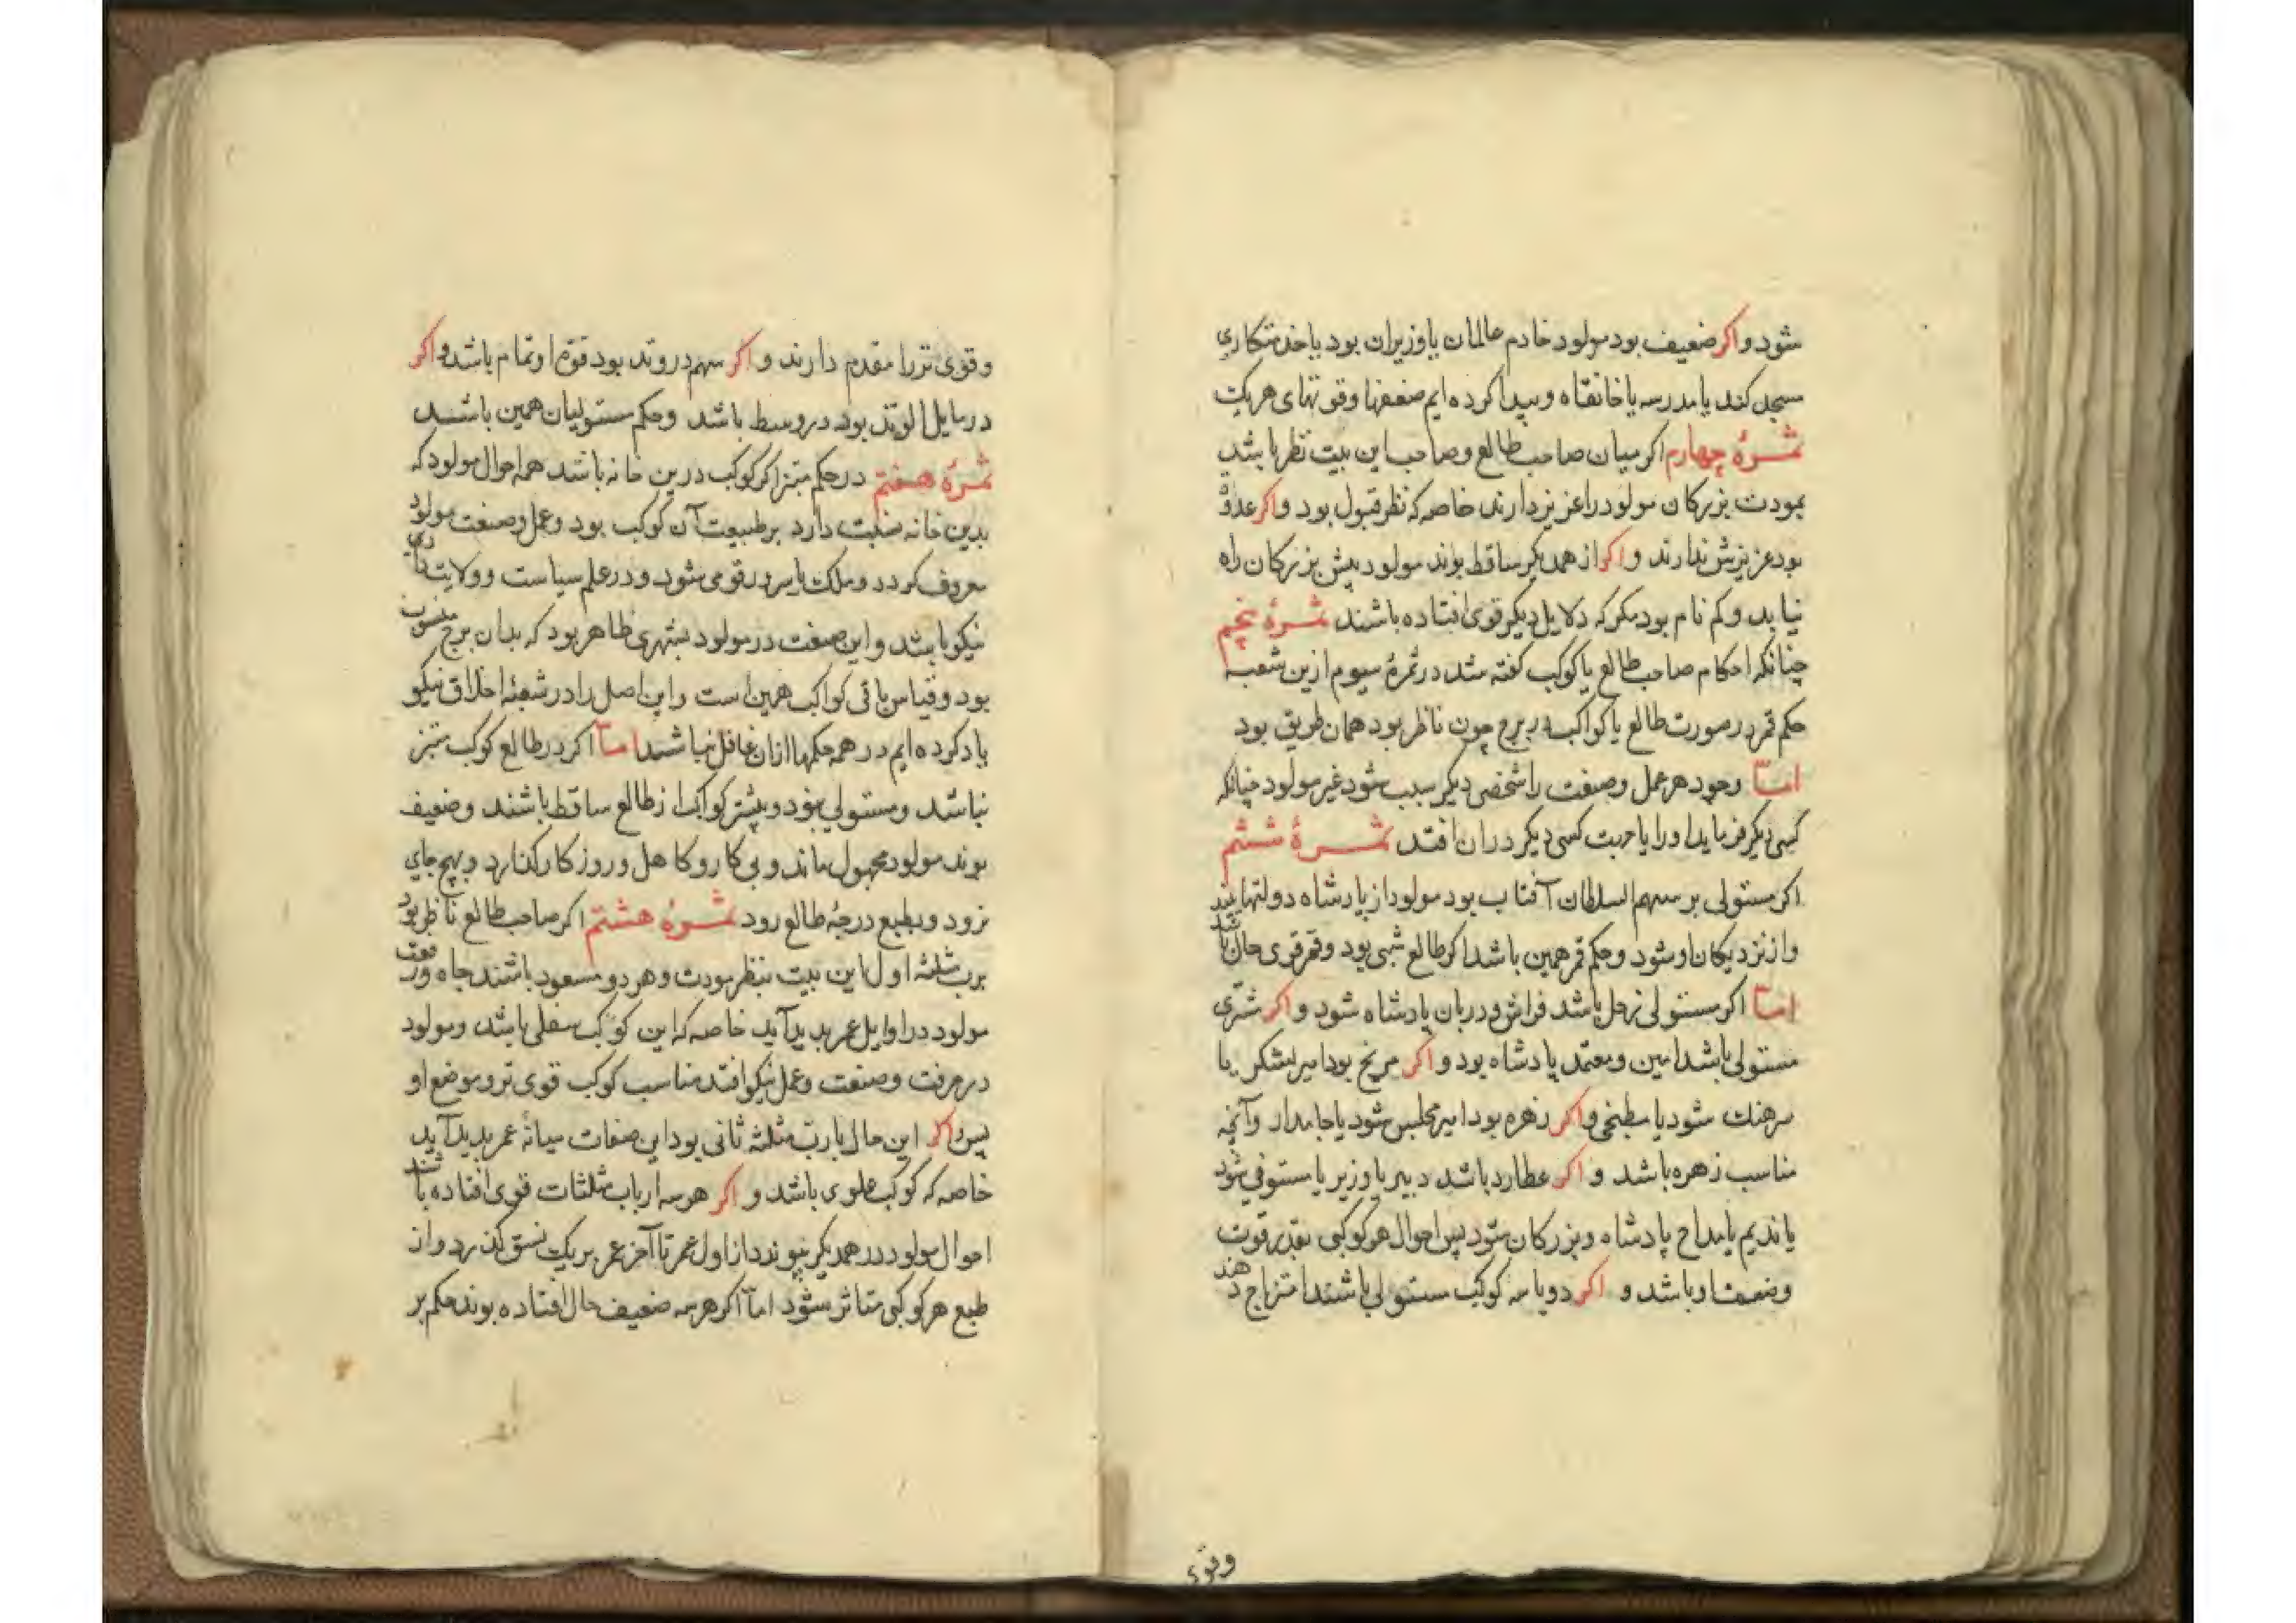 شود و اکر ضعیف بود مولود خادم عالمان یا وزیران بود یا خدمتکاری
مسجد کند یا مدرسه یا خانقاه و پیدا کرده ایم ضعفها و قوتهای هر یک
ثمرۀ چهارم اکر میان صاحب طالع و صاحب این بیت نظر باشد
بمودت بزرکان مولود را عزیز دارند خاصه که نظر قبول بود و اکر عدوّ
بود عزیزش ندارند و اکر از همدیکر ساقط بوند مولود پیش بزرکان راه
نیابد و کم نام بود مکر که دلایل دیکر قوی افتاده باشند ثمرۀ پنجم
چنانکه احکام صاحب طالع با کوکب کفته شد در ثمرۀ سیوم ازین شعبه
حکم قمر در صورت طالع با کواکب در برج چون ناظر بود همان طریق بود
امّا وجود هر عمل و صنعت را شخصی دیکر سبب شود غیر مولود چنانکه
کسی دیکر فرماید او را یا جهت کسی دیکر در ان افتد ثمرۀ ششم
اکر مستولی بر سهم السلطان آفتاب بود مولود از پادشاه دولتها بیند
و از نزدیکان او شود و حکم قمر همین باشد اکر طالع شبی بود و قمر قوی حال باشد
امّا اکر مستولی زحل باشد فراش و دربان پادشاه شود و اکر مشتری
مستولی باشد امین و معتمد پادشاه بود و اکر مریخ بود امیر لشکر یا
سرهنك شود یا مطبخی و اکر زهره بود امیر مجلس شود یا جامه‌دار و آنچه
مناسب زهره باشد و اکر عطارد باشد دبیر یا وزیر یا مستوفی شود
یا ندیم یا مداح پادشاه و بزرکان شود پس احوال هر کوکبی بقدر قوت
و ضعف او باشد و اکر دو یا سه کوکب مستولی باشند امتزاج دهند
وقوی
وقوی تر را مقدم دارند و اکر سهم در وتد بود قوة او تمام باشد و اکر
در مایل الوتد بود در وسط باشد و حکم مستولیان همین باشند
ثمرۀ هفتم در حکم مبتز اکر کوکب درین خانه باشد همه احوال مولود که
بدین خانه نسبت دارد بر طبیعت آن کوکب بود و عمل و صنعت مولود
معروف کردد و ملک یا سرور قومی شود و در علم سیاست و ولایت داری
نیکو باشد و این صنعت در مولود بشهری ظاهر بود که بدان برج منسوب
بود و قیاس باقی کواکب همین است و این اصل را در شعبۀ اخلاق نیکو
یاد کرده ایم در همه حکمها از ان غافل نباشند امّا اکر در طالع کوکب مبتز
نباشد و مستولی بنود و بیشتر کواکب از طالع ساقط باشند و ضعیف
بوند مولود مجهول ماند و بی کار و کاهل و روزکار کذارد و بهیچ جای
نرود و بطبع درجۀ طالع رود ثمرۀ هشتم اکر صاحب طالع ناظر بود
برب مثلثه اول این بیت بنظر مودت و هر دو مسعود باشند جاه و رفعت
مولود در اوایل عمر پدید آید خاصه که این کوکب سفلی باشد و مولود
در حرفت و صنعت و عمل نیکو افتد مناسب کوکب قوی تر و موضع او
پس و اکر این حال با ربّ مثلثه ثانی بود این صفات میانۀ عمر پدید آید
خاصه که کوکب علوی باشد و اکر هر سه ارباب مثلثات قوی افتاده باشند
احوال مولود در همدیکر پیوندد از اول عمر تا آخر عمر بر یک نسق کذرد و از
طبع هر کوکبی متاثر شود امّا اکر هر سه ضعیف حال افتاده بوند حکم بر